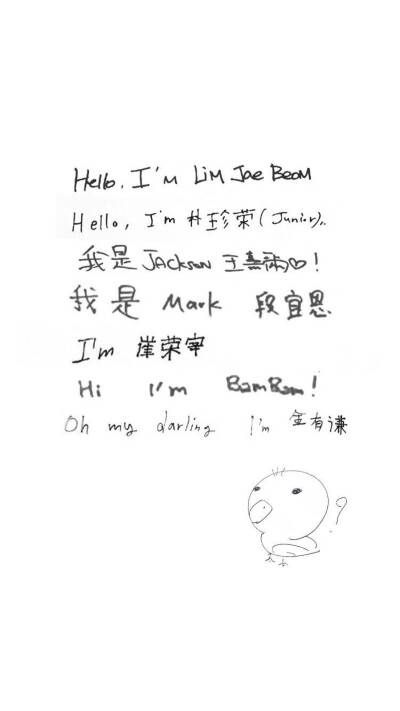 Hello, I'm Lim Jae Beom
Hello, I'm 朴珍荣(Junior).
我是 JAckson 王嘉尔♡!
我是 Mark 段宜恩
I'm 崔荣宰
Hi I'm BamBam!
Oh my darling I'm 金有谦
?